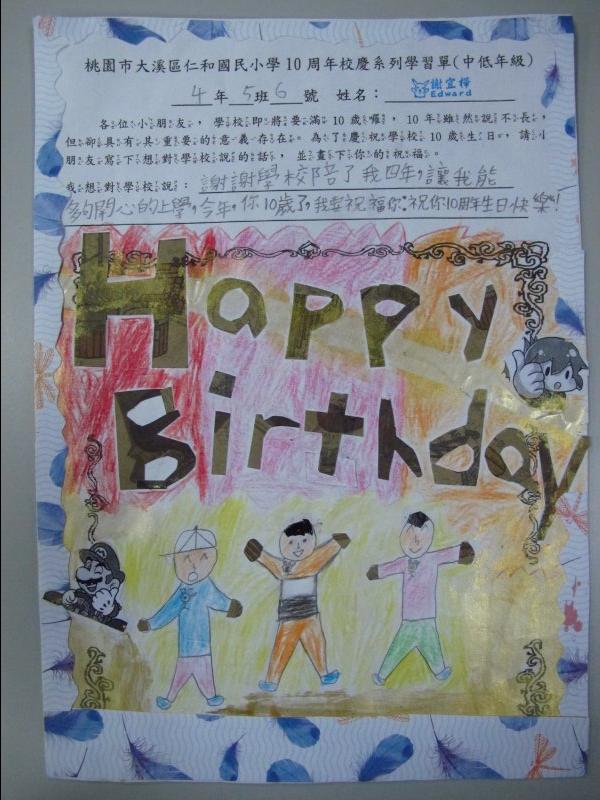 桃園市大溪區仁和國民小學10周年校慶系列學習單(中低年級)
4年5班6號 姓名：謝宜樺
Edward
各位小朋友，學校即將要滿10歲囉，10年雖然說不長，
但卻具有其重要的意義存在。為了慶祝學校10歲生日，請小
朋友寫下想對學校說的話，並畫下你的祝福。
我想對學校說：謝謝學校陪了我四年，讓我能
夠開心的上學，今年，你10歲了，我要祝福你：祝你10周年生日快樂！
Happy
Birthday